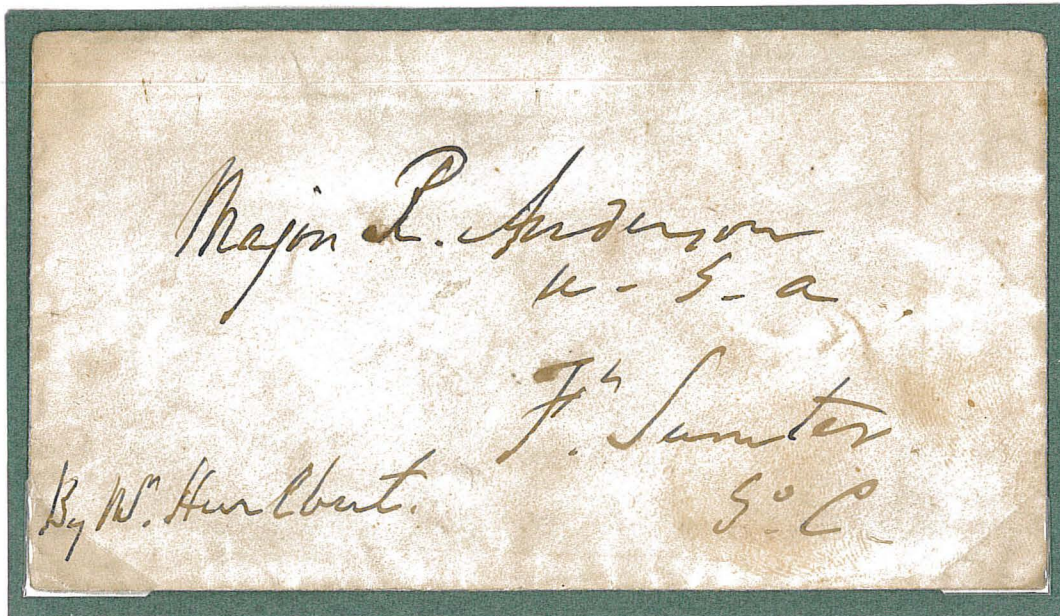 Major R. Anderson
U-S-A.
Ft. Sumter
So. C.
By Mr. Hurlbut.